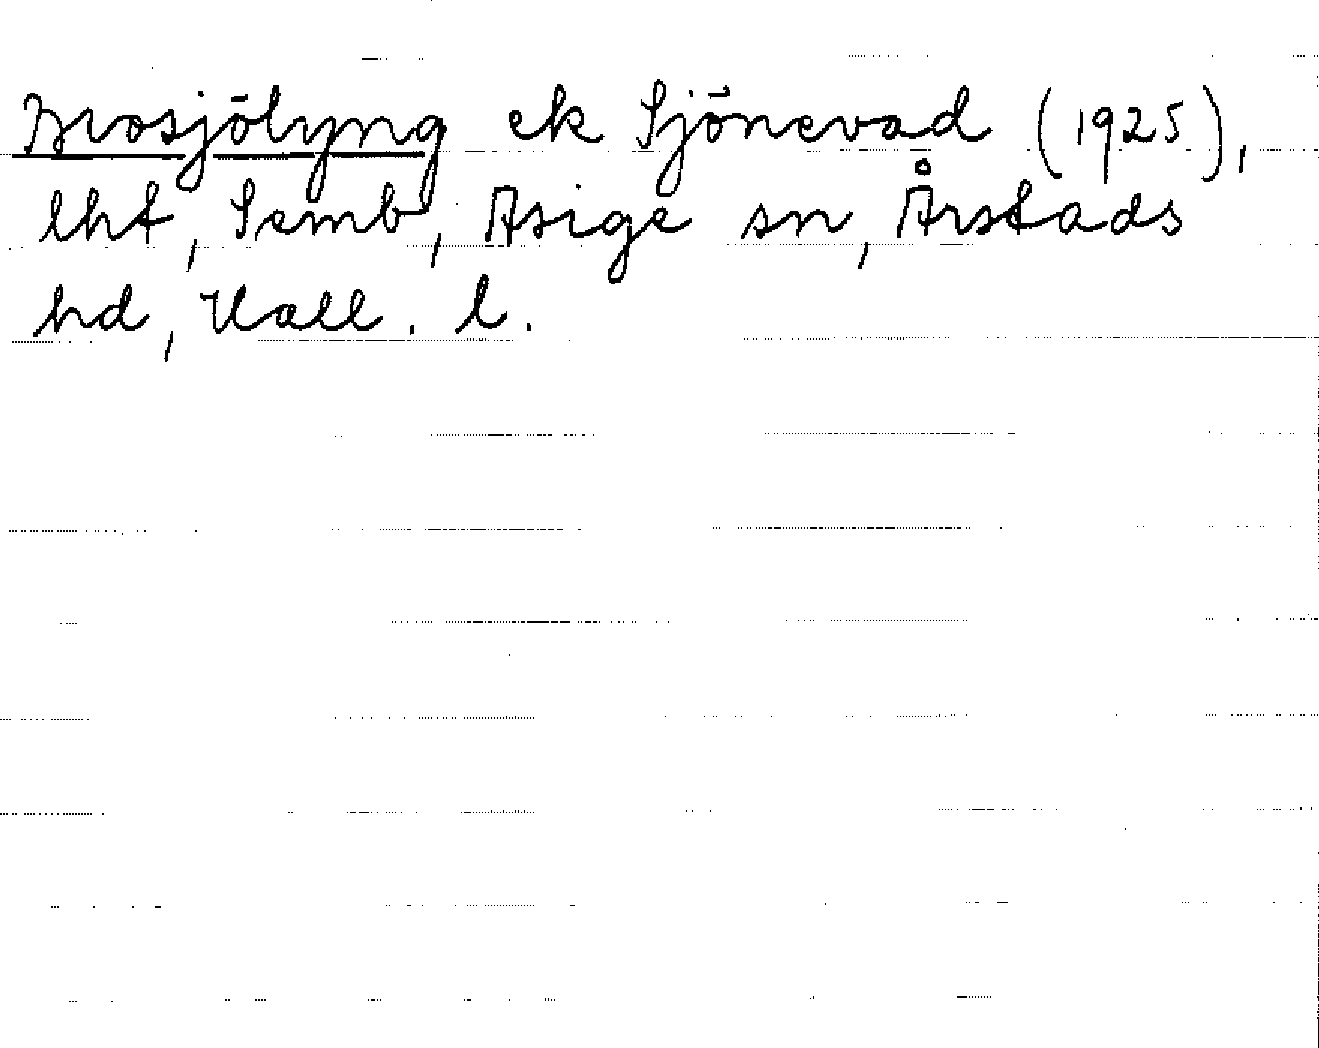 Brosjölyng ek Sjönevad (1925),
lht, Semb, Asige sn, Årstads
hd, Hall. l.